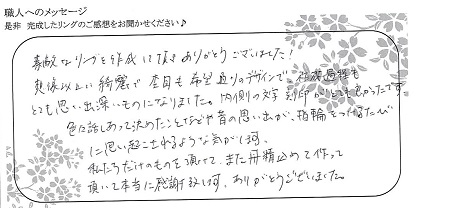 職人へのメッセージ
是非 完成したリングのご感想をお聞かせください♪
素敵なリングを作成して頂きありがとうございました!
想像以上に綺麗で 杢目も希望通りのデザインで、作成過程も
とても思い出深いものになりました。内側の文字 刻印がとても良かったです
色々話しあって決めたことなどや昔の思い出が、指輪をつけるたび
に思い起こされるような気がします。
私たちだけのものを頂けて、また丹精込めて作って
頂いて本当に感謝致します。ありがとうございました。